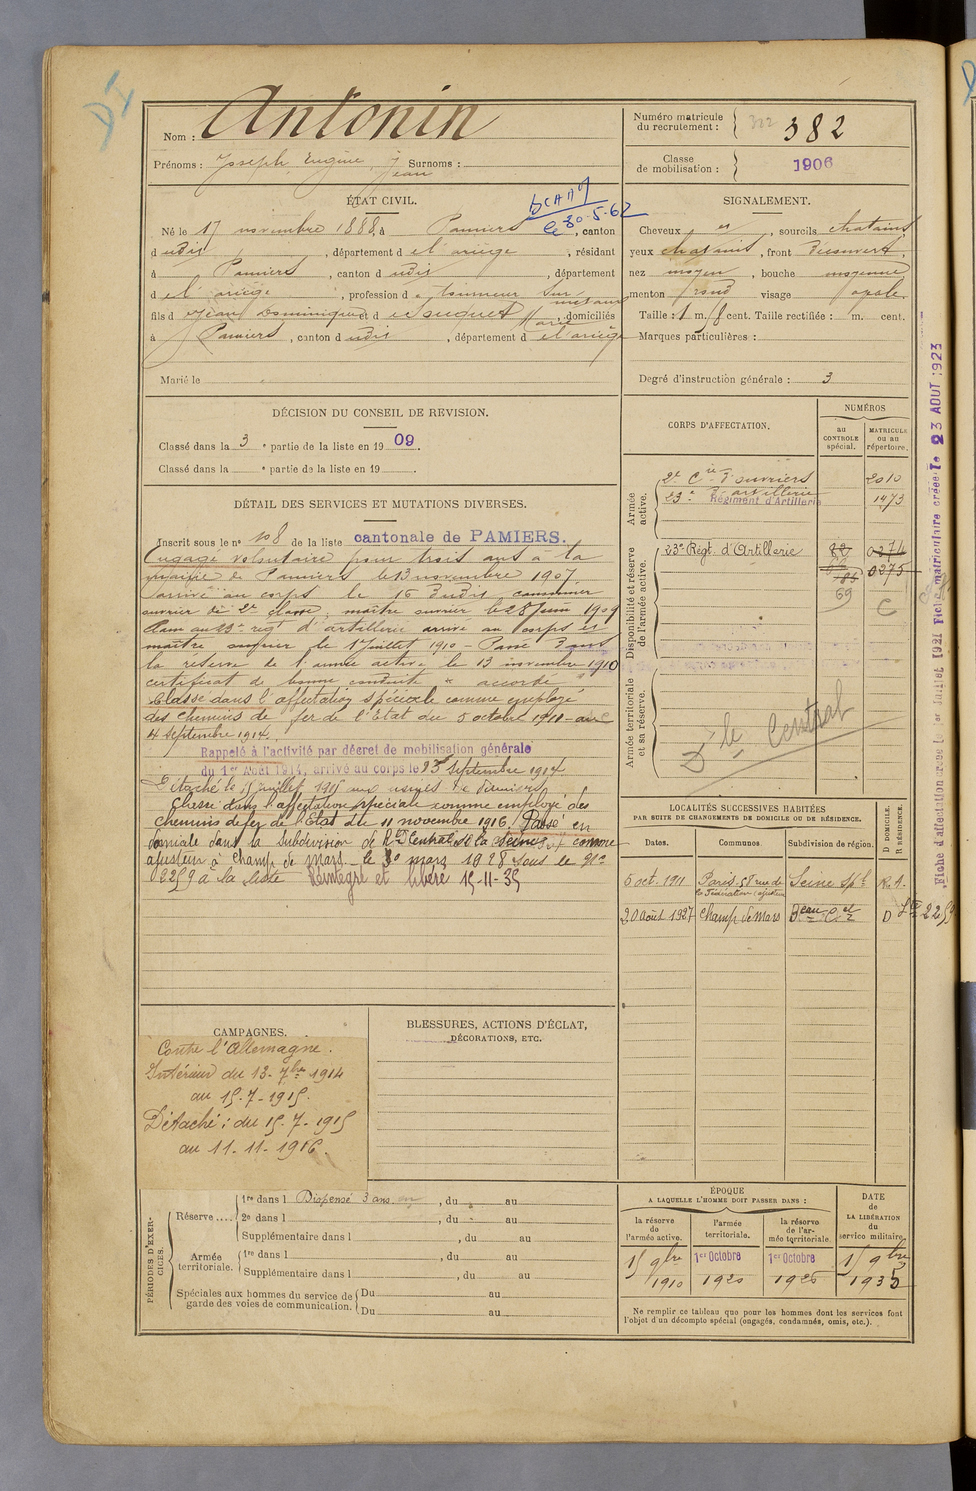 Nom : Antonin
Prénoms : Joseph Eugène Jean Surnoms :
Numéro matricule du recrutement : 382
Classe de mobilisation : 1906
ÉTAT CIVIL.
le 30-5-62
Né le 17 novembre 1888, à Pamiers, canton
dudit, département de l'ariège, résidant
à Pamiers, canton dudit, département
de l'ariège, profession de tourneur sur métaux
fils de Jean Dominique et de Marie, domiciliés
à Pamiers, canton dudit, département de l'ariège
Marié le
SIGNALEMENT.
Cheveux et, sourcils chatains
yeux chatains, front découvert,
nez moyen, bouche moyenne
menton rond visage ovale.
Taille : 1 m. cent. Taille rectifiée : m. cent.
Marques particulières :
Degré d'instruction générale : 3
DÉCISION DU CONSEIL DE REVISION.
Classé dans la 3 e partie de la liste en 1909
Classé dans la e partie de la liste en 19
DÉTAIL DES SERVICES ET MUTATIONS DIVERSES.
Inscrit sous le n° 108 de la liste cantonale de PAMIERS.
Engagé volontaire pour trois ans à la
mairie de Pamiers le 13 novembre 1907.
arrivé au corps le 16 dudit canonnier
ouvrier de 2e classe, maître ouvrier le 28 juin 1909
au 23e régt d'artillerie arrivé au corps et
maître ouvrier le 1er juillet 1910 - Passé dans
la réserve de l'armée active le 13 novembre 1910
certificat de bonne conduite "accordé"
Classé dans l'affectation spéciale comme employé
des chemins de fer de l'Etat du 5 octobre 1911 - au
4 septembre 1914.
Rappelé à l'activité par décret de mobilisation générale
du 1er Août 1914, arrivé au corps le 13 septembre 1914
Détaché le 15 juillet 1915 aux usines de
Classé dans l'affectation spéciale comme employé des
chemins de fer de l'Etat dte 11 novembre 1916. Passé en
domicile dans la subdivision de Rt Central de la Seine comme
ajusteur à Champ de Mars le 30 mars 1928 sous le n°
02259 à la liste Réintégré et libéré 15-11-35
CORPS D'AFFECTATION.
NUMÉROS
au CONTROLE spécial.
MATRICULE ou au répertoire.
Armée active.
2e Cie d'ouvriers d'artillerie 2010
23e Régiment d'Artillerie 1473
Disponibilité et réserve de l'armée active.
23e Régt. d'Artillerie 0274
0275
69 C
Armée territoriale et sa réserve.
Dt le Central
LOCALITÉS SUCCESSIVES HABITÉES
PAR SUITE DE CHANGEMENTS DE DOMICILE OU DE RÉSIDENCE.
D DOMICILE. R RÉSIDENCE.
Dates. Communes. Subdivision de région.
5 oct. 1911 Paris 58 rue de la Fédération (ajusteur) Seine Spl R.A.
20 août 1927 Champ de Mars D 2259
Fiche d'affectation créée le 1er Juillet 1921 Fiche matriculaire créée le 23 AOUT 1923
CAMPAGNES.
Contre l'Allemagne.
Intérieur du 13-7bre 1914
au 15-7-1915.
Détaché : du 15-7-1915
au 11-11-1916.
BLESSURES, ACTIONS D'ÉCLAT,
DÉCORATIONS, ETC.
PÉRIODES D'EXERCICES.
Réserve....
1re dans l Dispensé 3 ans, du au
2e dans l, du au
Supplémentaire dans l, du au
Armée territoriale.
1re dans l, du au
Supplémentaire dans l, du au
Spéciales aux hommes du service de garde des voies de communication.
Du au
Du au
ÉPOQUE
A LAQUELLE L'HOMME DOIT PASSER DANS :
la réserve de l'armée active.
l'armée territoriale.
la réserve de l'armée territoriale.
DATE de LA LIBÉRATION du service militaire.
15 9bre 1910
1er Octobre 1920
1er Octobre 1926
15 9bre 1935
Ne remplir ce tableau que pour les hommes dont les services font
l'objet d'un décompte spécial (engagés, condamnés, omis, etc.).